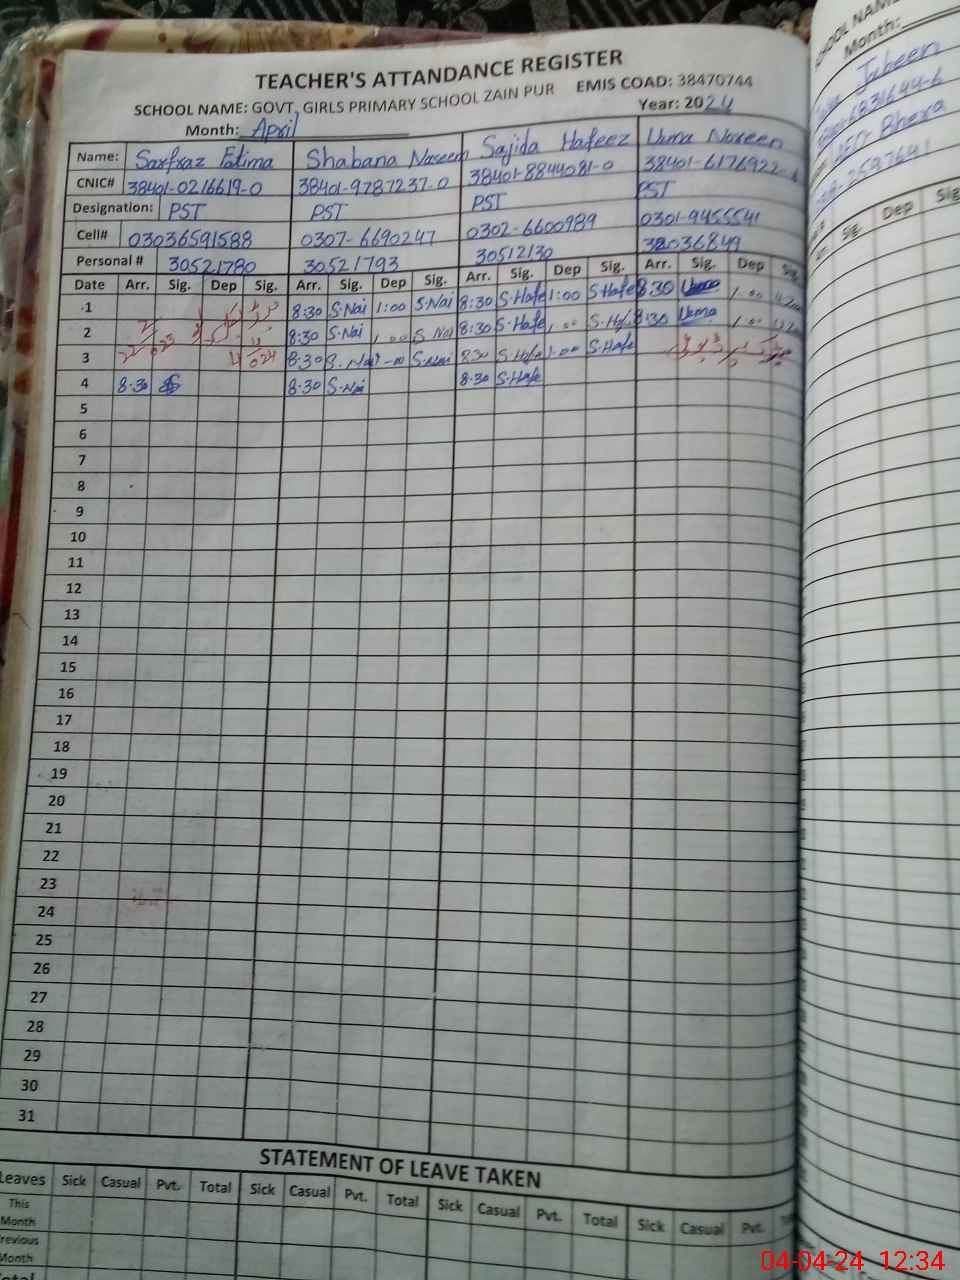 TEACHER'S ATTANDANCE REGISTER
SCHOOL NAME: GOVT, GIRLS PRIMARY SCHOOL ZAIN PUR EMIS COAD: 38470744
Month: April Year: 2024
Name: Sarfraz Fatima Shabana Naseem Sajida Hafeez Uzma Noreen
CNIC# 38401-0216619-0 38401-9787237-0 38401-8844081-0 38401-6176922-
Designation: PST PST PST PST
Cell# 03036591588 0307-6690247 0302-6600989 0301-9455541
Personal # 30521780 30521793 30512130 32036849
Date Arr. Sig. Dep Sig. Arr. Sig. Dep Sig. Arr. Sig. Dep Sig. Arr. Sig. Dep Sig.
1 8:30 S.Nai 1:00 S.Nai 8:30 S.Hafe 1:00 S.Hafe 8:30 Uzma 1:00
2 8:30 S.Nai 1:00 S.Nai 8:30 S.Hafe 1:00 S.Hafe 8:30 Uzma 1:00
3 8:30 S.Nai 1-00 S.Nai 8:30 S.Hafe 1:00 S.Hafe
4 8:30 8:30 S.Nai 8:30 S.Hafe
5
6
7
8
9
10
11
12
13
14
15
16
17
18
19
20
21
22
23
24
25
26
27
28
29
30
31
STATEMENT OF LEAVE TAKEN
Leaves Sick Casual Pvt. Total Sick Casual Pvt. Total Sick Casual Pvt. Total Sick Casual Pvt.
This
Month
Previous
Month
Total
SCHOOL NAME
Month:
Jabeen
Bhera
Sig. Dep Sig
04-04-24 12:34